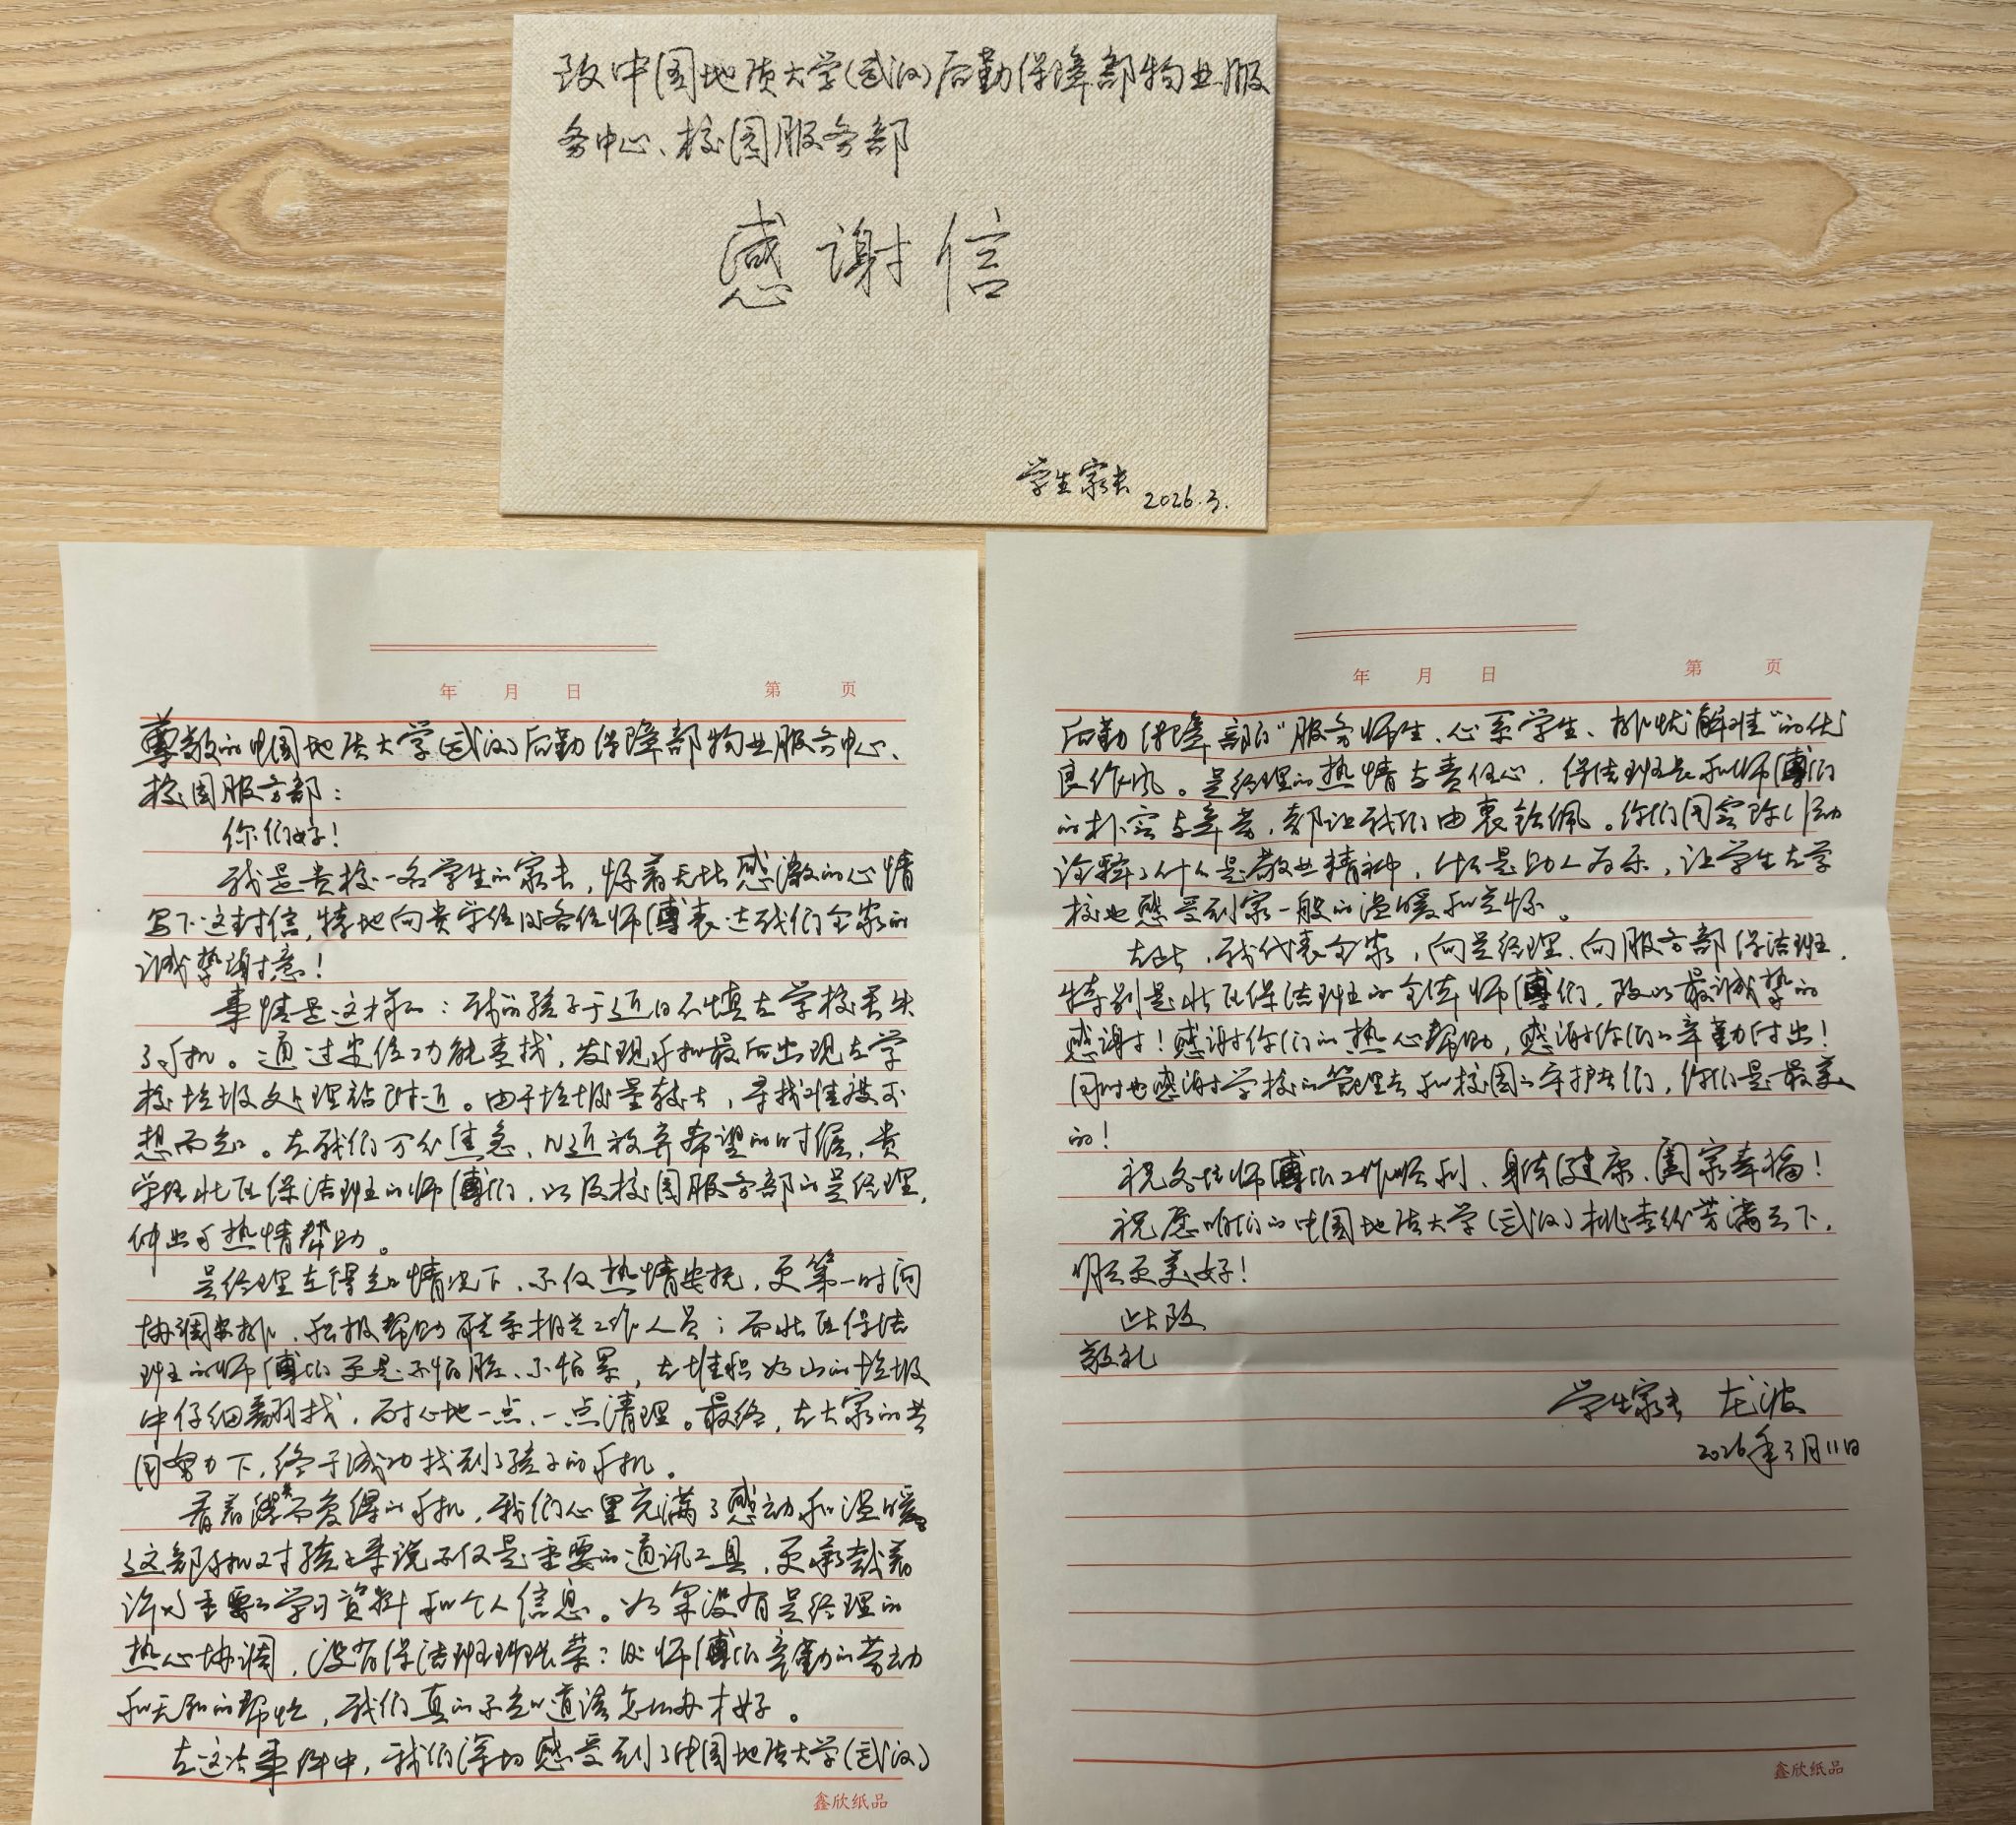 致中国地质大学(武汉)后勤保障部物业服
务中心、校园服务部
感谢信
学生家长 2026.3.
年 月 日 第 页
尊敬的中国地质大学(武汉)后勤保障部物业服务中心、
校园服务部:
你们好!
我是贵校一名学生的家长,怀着无比感激的心情
写下这封信,特地向贵学校及各位师傅表达我们全家的
诚挚谢意!
事情是这样的:我的孩子于近日不慎在学校丢失
了手机。通过定位功能查找,发现手机最后出现在学
校垃圾处理站附近。由于垃圾量较大,寻找难度可
想而知。在我们万分焦急、几近放弃希望的时候,贵
学校北区保洁班的师傅们,以及校园服务部的吴经理,
伸出了热情帮助。
吴经理在得知情况下,不仅热情安抚,更第一时间
协调安排,积极帮助联系相关工作人员;而北区保洁
班的师傅们更是不怕脏、不怕累,在堆积如山的垃圾
中仔细翻找,耐心地一点、一点清理。最终,在大家的共
同努力下,终于成功找到了孩子的手机。
看着失而复得的手机,我们心里充满了感动和温暖
这部手机对孩子来说不仅是重要的通讯工具,更承载着
许多重要的学习资料和个人信息。如果没有吴经理的
热心协调,没有保洁班班长荣 师傅们辛勤的劳动
和无私的帮忙,我们真的不知道该怎么办才好。
在这次事件中,我们深切感受到了中国地质大学(武汉)
鑫欣纸品
年 月 日 第 页
后勤保障部的"服务师生、心系学生、排忧解难"的优
良作风。吴经理的热情与责任心,保洁班长和师傅们
的朴实与辛劳,都让我们由衷钦佩。你们用实际行动
诠释了什么是敬业精神,什么是助人为乐,让学生在学
校也感受到家一般的温暖和关怀。
在此,我代表全家,向吴经理、向服务部保洁班,
特别是北区保洁班的全体师傅们,致以最诚挚的
感谢!感谢你们的热心帮助,感谢你们的辛勤付出!
同时也感谢学校的管理者和校园的守护者们,你们是最美
的!
祝各位师傅们工作顺利、身体健康、阖家幸福!
祝愿咱们的中国地质大学(武汉)桃李芬芳满天下,
明天更美好!
此致
敬礼
学生家长 龙波
2026年3月11日
鑫欣纸品